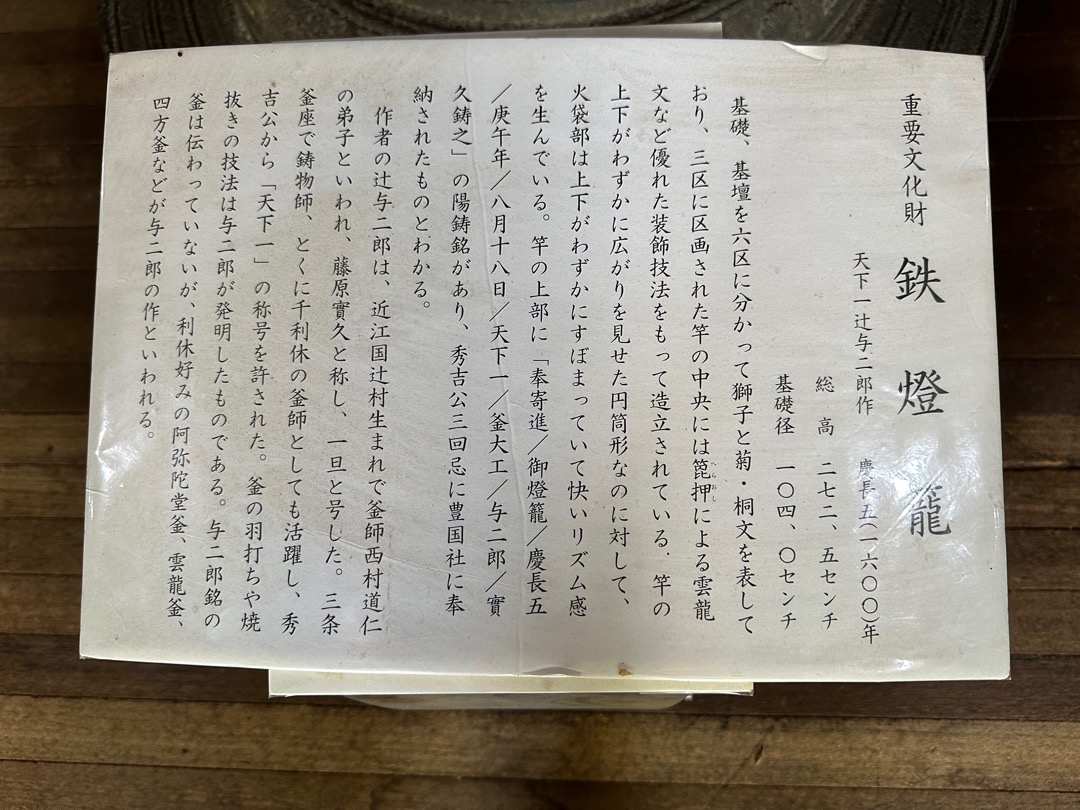 重要文化財 鉄燈籠
天下一辻与二郎作 慶長五(一六〇〇)年
総高 二七二、五センチ
基礎径 一〇四、〇センチ
基礎、基壇を六区に分かって獅子と菊・桐文を表して
おり、三区に区画された竿の中央には箆押による雲龍
へらおし
文など優れた装飾技法をもって造立されている。竿の
上下がわずかに広がりを見せた円筒形なのに対して、
火袋部は上下がわずかにすぼまっていて快いリズム感
を生んでいる。竿の上部に「奉寄進／御燈籠／慶長五
／庚午年／八月十八日／天下一／釜大工／与二郎／實
久鋳之」の陽鋳銘があり、秀吉公三回忌に豊国社に奉
納されたものとわかる。
作者の辻与二郎は、近江国辻村生まれで釜師西村道仁
の弟子といわれ、藤原實久と称し、一旦と号した。三条
釜座で鋳物師、とくに千利休の釜師としても活躍し、秀
吉公から「天下一」の称号を許された。釜の羽打ちや焼
抜きの技法は与二郎が発明したものである。与二郎銘の
釜は伝わっていないが、利休好みの阿弥陀堂釜、雲龍釜、
四方釜などが与二郎の作といわれる。